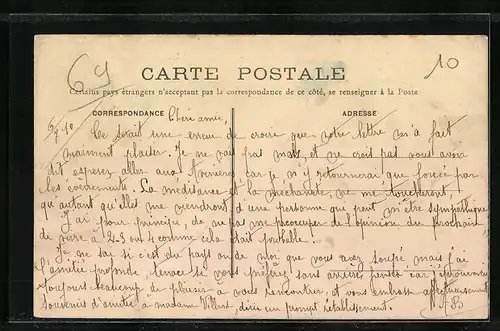 69
10
CARTE POSTALE
Certains pays étrangers n'acceptant pas la correspondance de ce côté, se renseigner à la Poste
CORRESPONDANCE
ADRESSE
Chère amie,
Ce serait une erreur de croire que votre lettre m'a fait
vraiment plaisir. Je ne vais pas mal, et ne crois pas vous avoir
dit espérez aller car je n'y retournerai que forcée par
les événements. La médisance et la méchanceté, ne me toucheront,
qu'autant qu'elles me viendront d'une personne qui peut m'être sympathique
J'ai pour principe, de ne pas me préoccuper de l'opinion du prochain
de vivre à 2-3 ou 4 comme cela était probable.
Je ne sai si c'est du pays ou de moi que vous avez soupé mais j'ai
l'amitié profonde, tenace si vous préférez sans arrière pensée car j'éprouverai
toujours beaucoup de plaisir à vous rencontrer, et vous embrasse affectueusement
Souvenirs d'amitié à madame Villert, désire un prompt rétablissement.